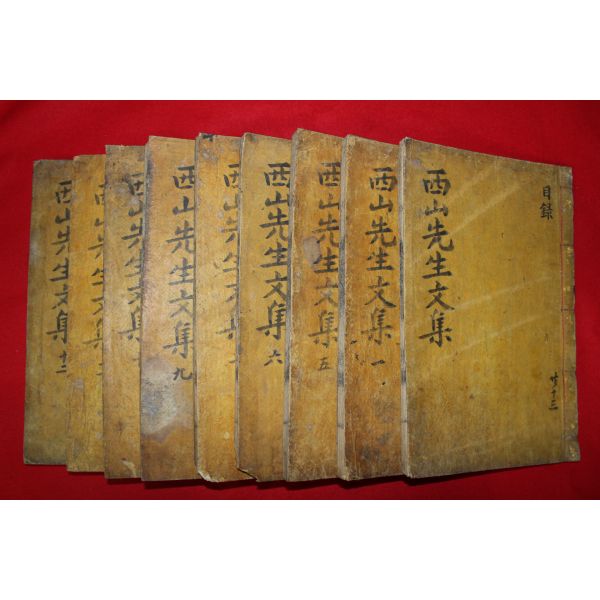 目録
西山先生文集
共十三
西山先生文集 一
西山先生文集 五
西山先生文集 六
西山先生文集
西山先生文集 九
西山先生文集
西山先生文集
西山先生文集 十二